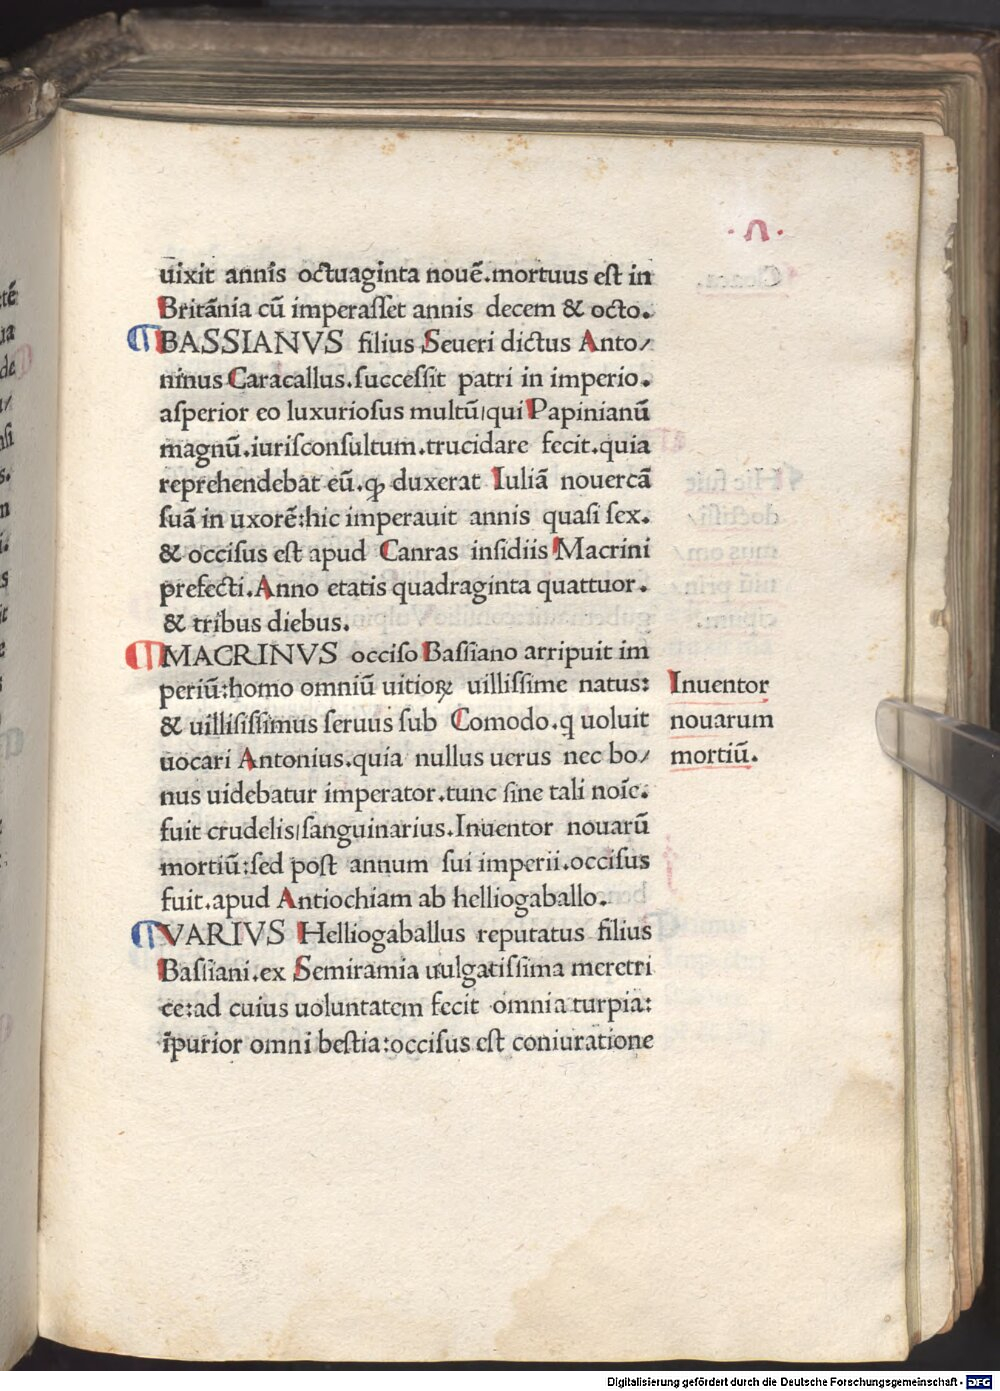 .Λ.
uixit annis octuaginta nouē.mortuus eſt in
Britānia cū imperaſſet annis decem & octo.
BASSIANVS filius Seueri dictus Anto/
ninus Caracallus.ſucceſſit patri in imperio.
aſperior eo luxurioſus multū|qui Papinianū
magnū.iuriſconſultum.trucidare fecit.quia
reprehendebat eū.ꝙ duxerat Iuliā nouercā
ſuā in uxorē:hic imperauit annis quaſi ſex.
& occiſus eſt apud Canras inſidiis Macrini
prefecti.Anno etatis quadraginta quattuor.
& tribus diebus.
MACRINVS occiſo Baſſiano arripuit im
periū:homo omniū uitioꝝ uilliſſime natus:
& uilliſiſſimus ſeruus ſub Comodo.q uoluit
uocari Antonius.quia nullus uerus nec bo/
nus uidebatur imperator.tunc ſine tali noīe.
fuit crudelis|ſanguinarius.Inuentor nouarū
mortiū:ſed poſt annum ſui imperii.occiſus
fuit.apud Antiochiam ab helliogaballo.
VARIVS Helliogaballus reputatus filius
Baſſiani.ex Semiramia uulgatiſſima meretri
ce:ad cuius uoluntatem fecit omnia turpia:
īpurior omni beſtia:occiſus eſt coniuratione
Inuentor
nouarum
mortiū.
Digitalisierung gefördert durch die Deutsche Forschungsgemeinschaft - DFG